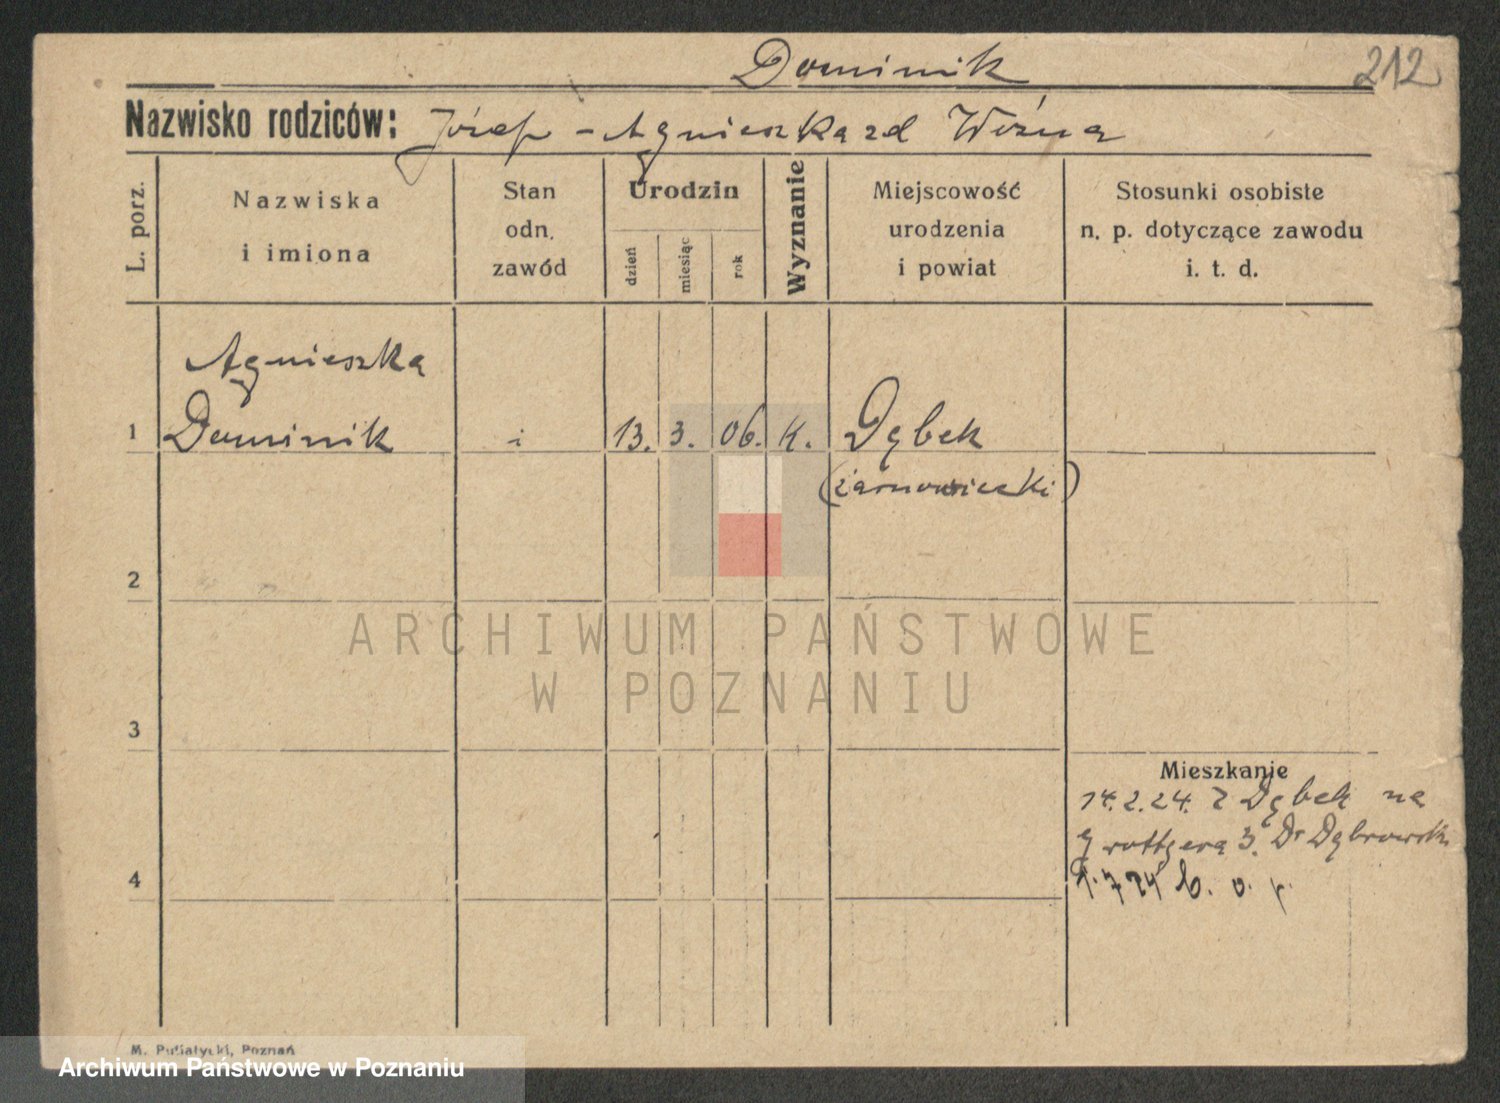 Dominik
212
Nazwisko rodziców: Józef - Agnieszka zd Woźna
L. porz.
Nazwiska
i imiona
Stan
odn.
zawód
Urodzin
dzień
miesiąc
rok
Wyznanie
Miejscowość
urodzenia
i powiat
Stosunki osobiste
n. p. dotyczące zawodu
i. t. d.
Agnieszka
1 Dominik i 13. 3. 06. k. Dębek
(żarnowiecki)
2
3
4
Mieszkanie
14.2.24. z Dębek na
Grottgera 3. Dr Dąbrowski
24 b. o.
M. Putiatycki, Poznań
ARCHIWUM PAŃSTWOWE
W POZNANIU
Archiwum Państwowe w Poznaniu